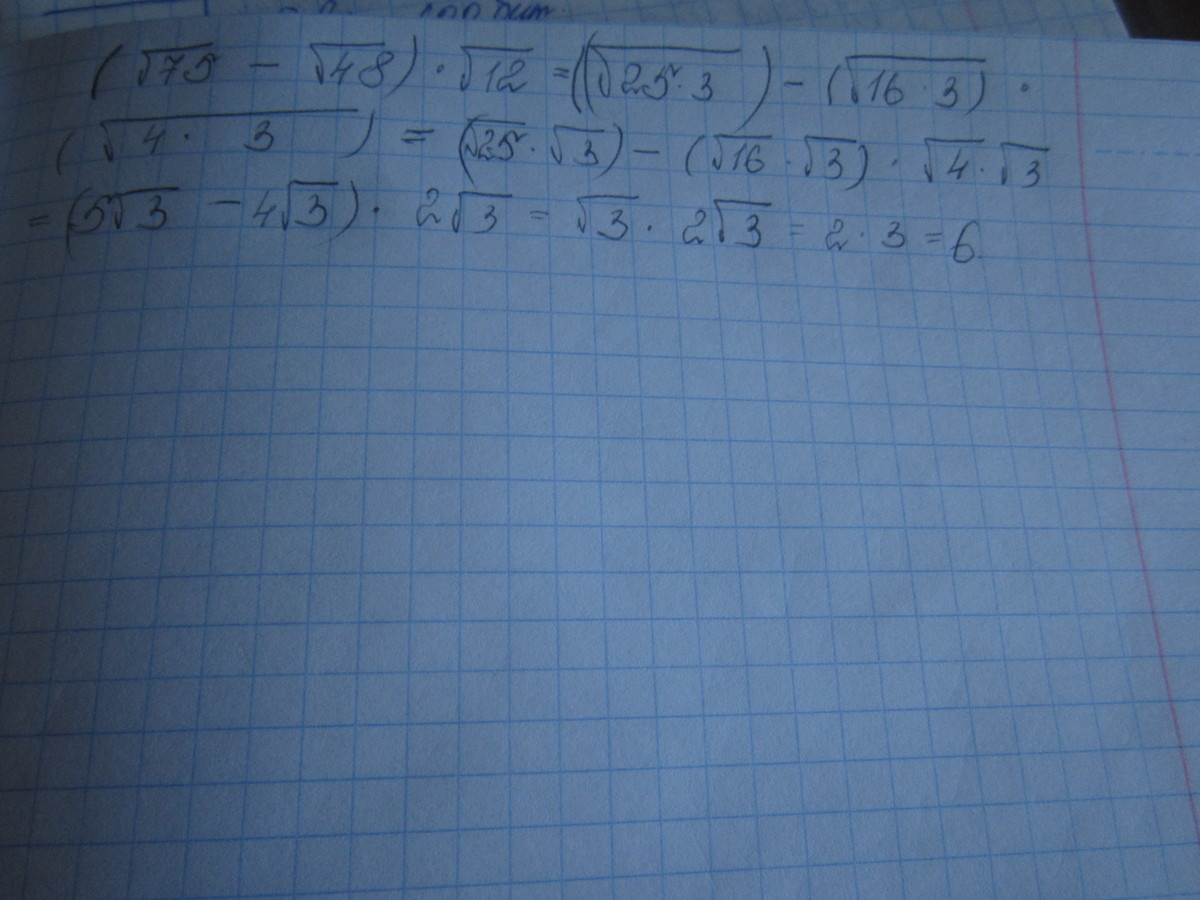 (√75 - √48) · √12 = ((√25·3) - (√16·3) ·
(√4· 3) = (√25·√3) - (√16·√3) · √4·√3
= (5√3 - 4√3) · 2√3 = √3 · 2√3 = 2·3 = 6